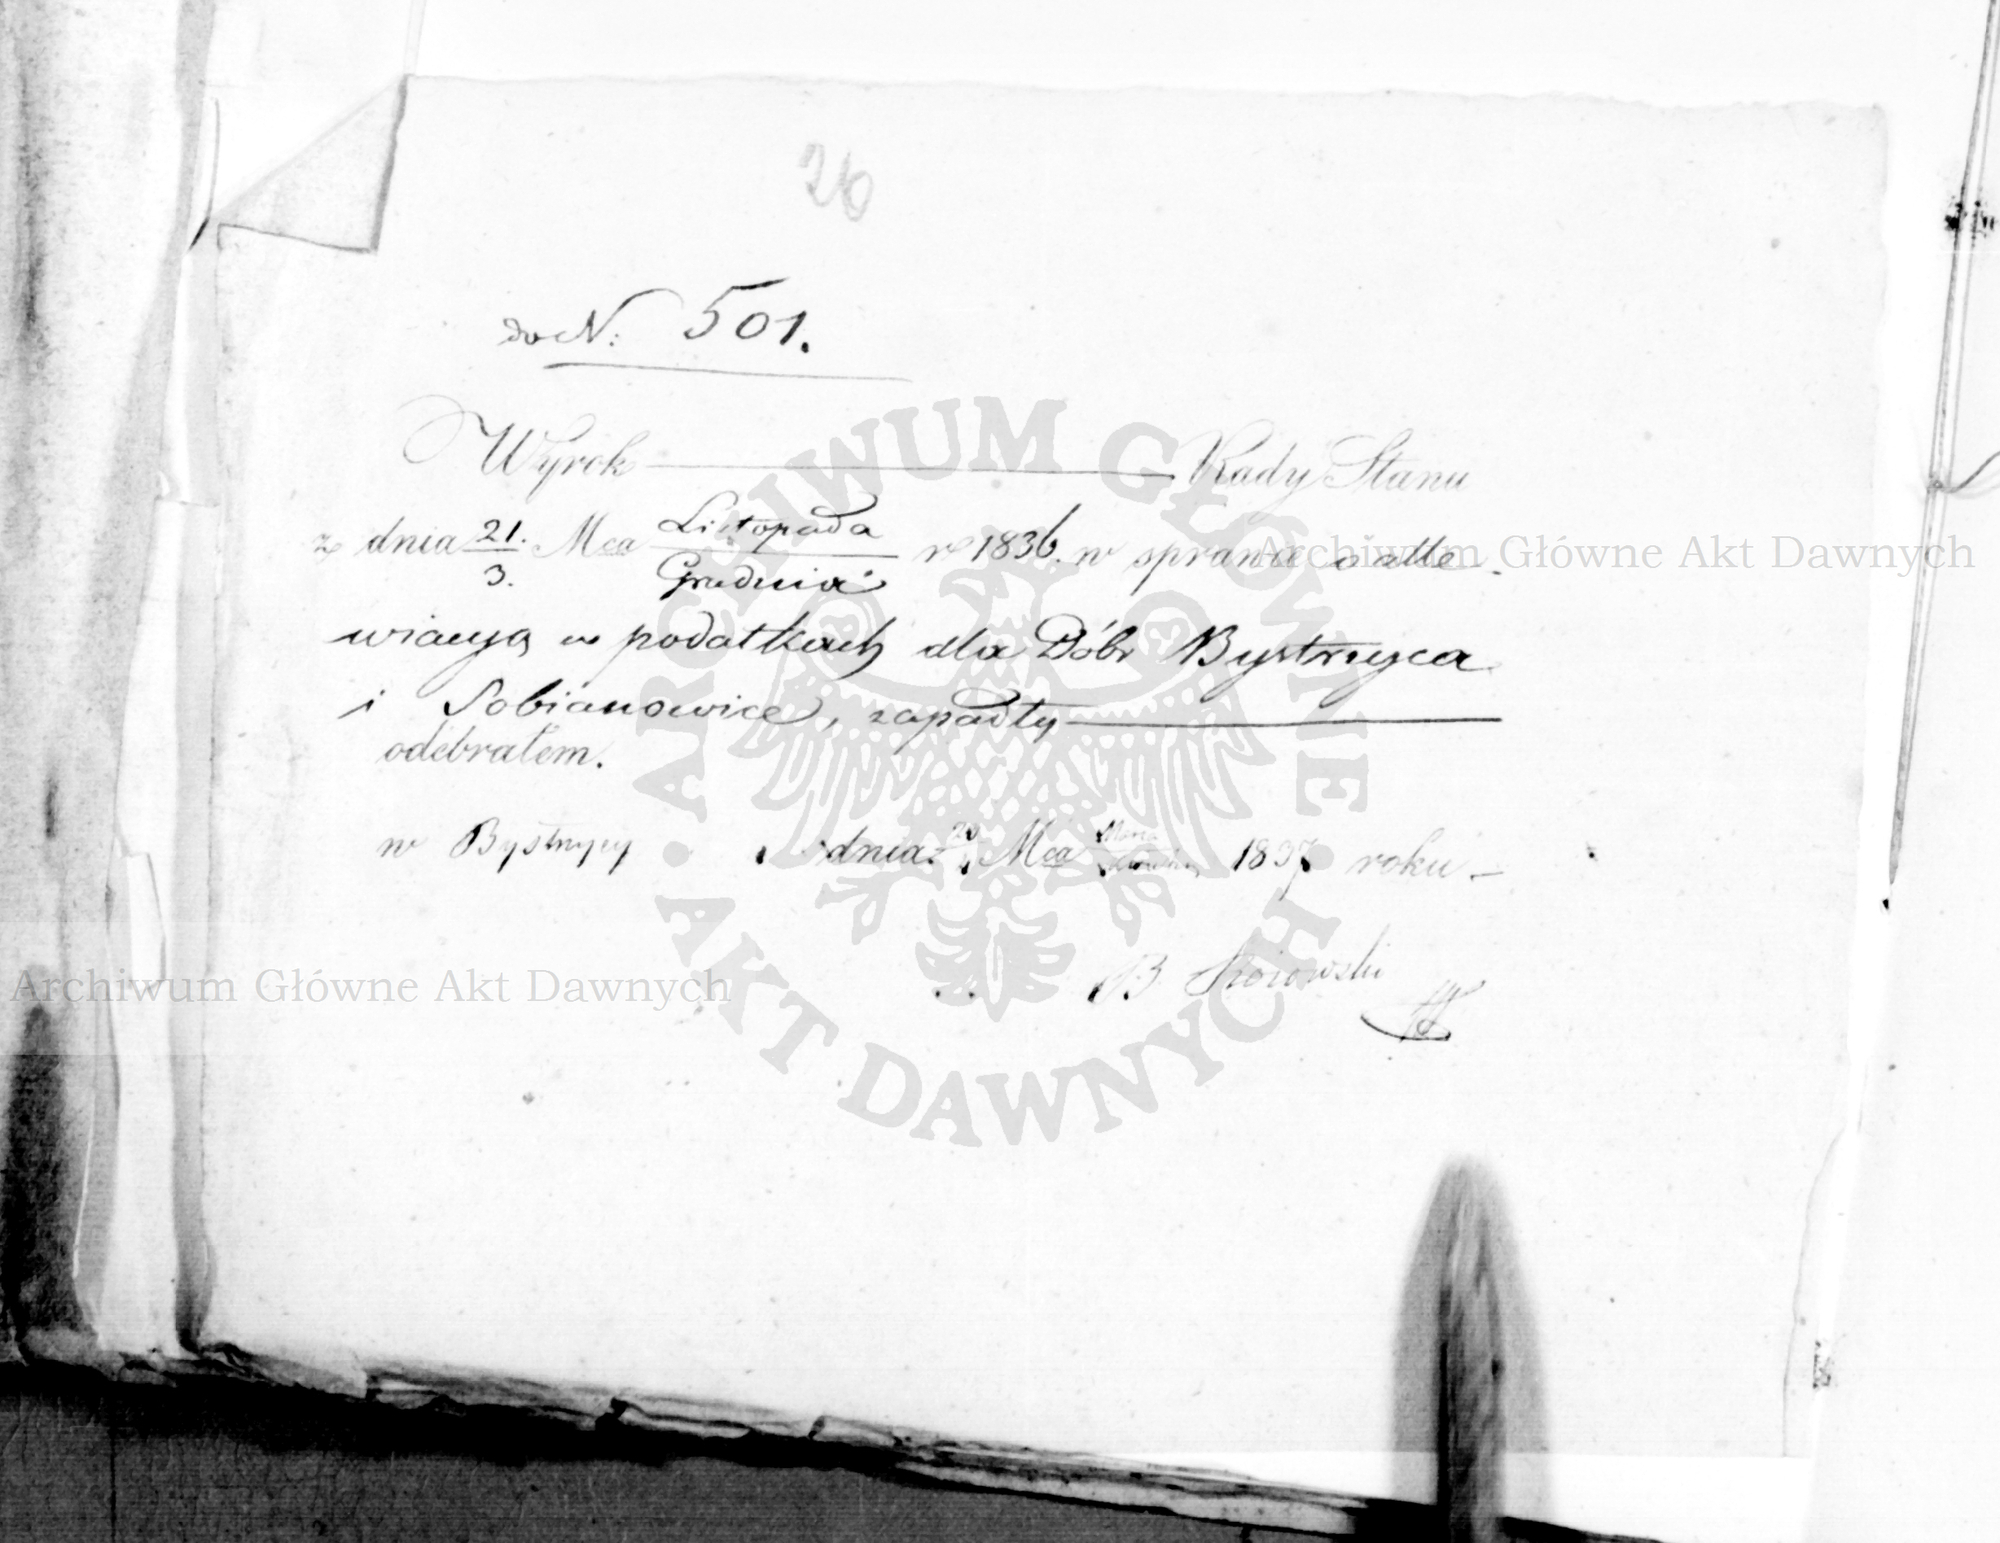 26
do N: 501.
Wyrok Rady Stanu
z dnia 21./3. Mca Listopada/Grudnia r 1836. w sprawie o alle-
wiacyą w podatkach dla Dóbr Bystrzyca
i Sobianowice, zapadły
odebrałem.
w Bystrzycy dnia 20 Mca Marca 1837 roku
B
ARCHIWUM GŁÓWNE AKT DAWNYCH
Archiwum Główne Akt Dawnych
Archiwum Główne Akt Dawnych